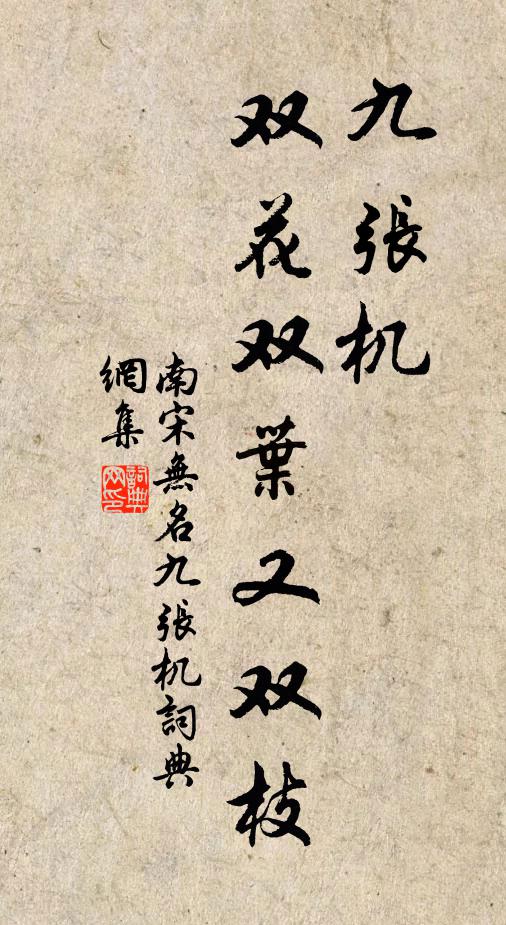 九張机
双花双葉又双枝
南宋無名九張机詞典
網集
詞典
网印